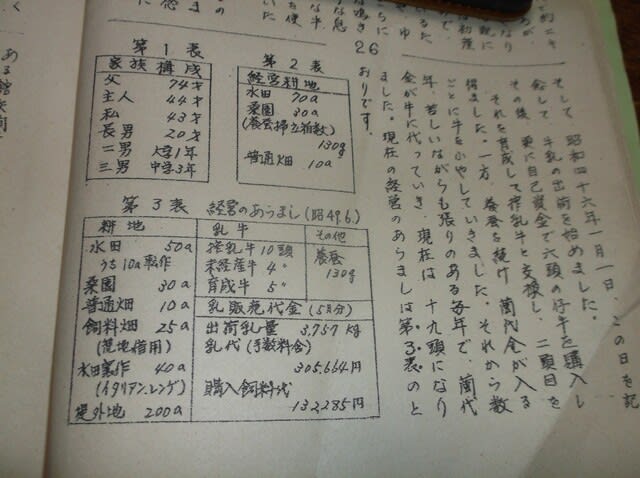 26
そして、昭和四十六年一月一日、この日を記
念して、牛乳の出荷を始めました。
その後、更に自己資金で六頭の仔牛を購入し
それを育成して搾乳牛と交換し、二頭目を
得ました。一方、養蚕を続け、繭代金が入る
ごとに牛をふやしていきました。それから数
年、苦しいながらも張りのある毎年で、繭代
金が牛に代っていき、現在は、十九頭になり
ました。現在の経営のあらましは第3表のと
おりです。
第1表
家族構成
父 74才
主人 44才
私 43才
長男 20才
二男 大学1年
三男 中学3年
第2表
経営耕地
水田 70a
桑園 30a
(養蚕掃立箱数)
130g
普通畑 10a
第3表 経営のあらまし(昭49.6.)
耕地
水田 50a
うち10a転作
桑園 30a
普通畑 10a
飼料畑 25a
(荒地借用)
水田裏作 40a
(イタリアンレンゲ)
堤外地 200a
乳牛
搾乳牛 10頭
未経産牛 4〃
育成牛 5〃
その他
養蚕
130g
乳販売代金(5月分)
出荷乳量 3,757kg
乳代(手数料含)
305,664円
購入飼料代
132,285円